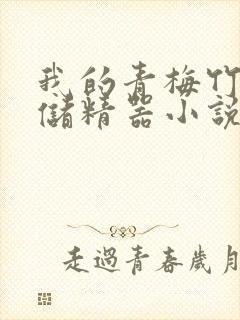 我的青梅竹
儲精器小説
走過青春歲月